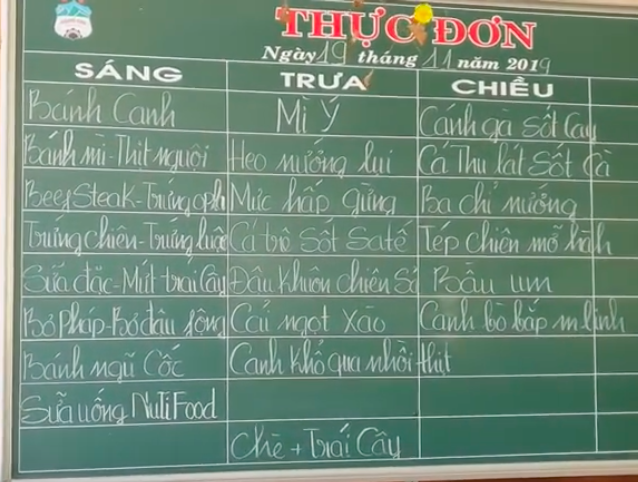 THỰC ĐƠN
Ngày 19 tháng 11 năm 2019
SÁNG TRƯA CHIỀU
Bánh Canh Mì Ý Cánh gà Sốt Cay
Bánh mì-Thịt nguội Heo nướng lụi Cá Thu lát Sốt Cà
BeefSteak-Trứng opla Mực hấp gừng Ba chỉ nướng
Trứng chiên-Trứng luộc Cá trê Sốt Satế Tép chiên mỡ hành
Sữa đặc-Mứt trái Cây Đậu Khuôn chiên Sả Bầu um
Bơ Pháp-Bơ đậu phộng Cải ngọt Xào Canh bò bắp
Bánh ngũ Cốc Canh khổ qua nhồi thịt
Sữa uống NutiFood
Chè + Trái Cây